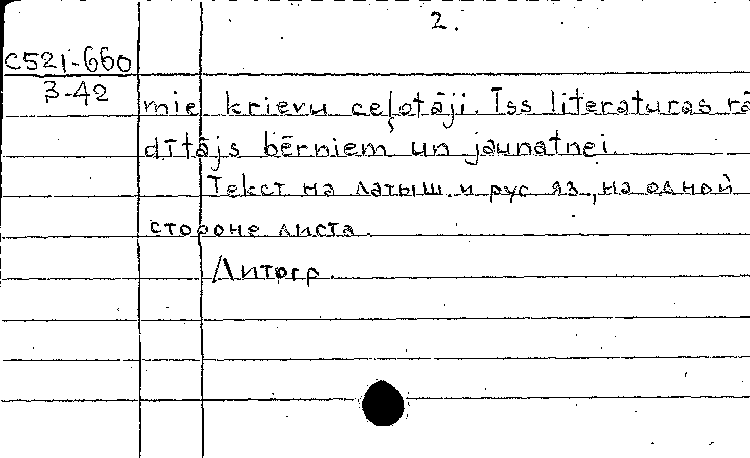 2.
C521-660
3-42
mie krievu ceļotāji. Īss literaturas rā
dītājs bērniem un jaunatnei.
Текст на латыш. и рус яз., на одной
стороне листа.
Литогр.